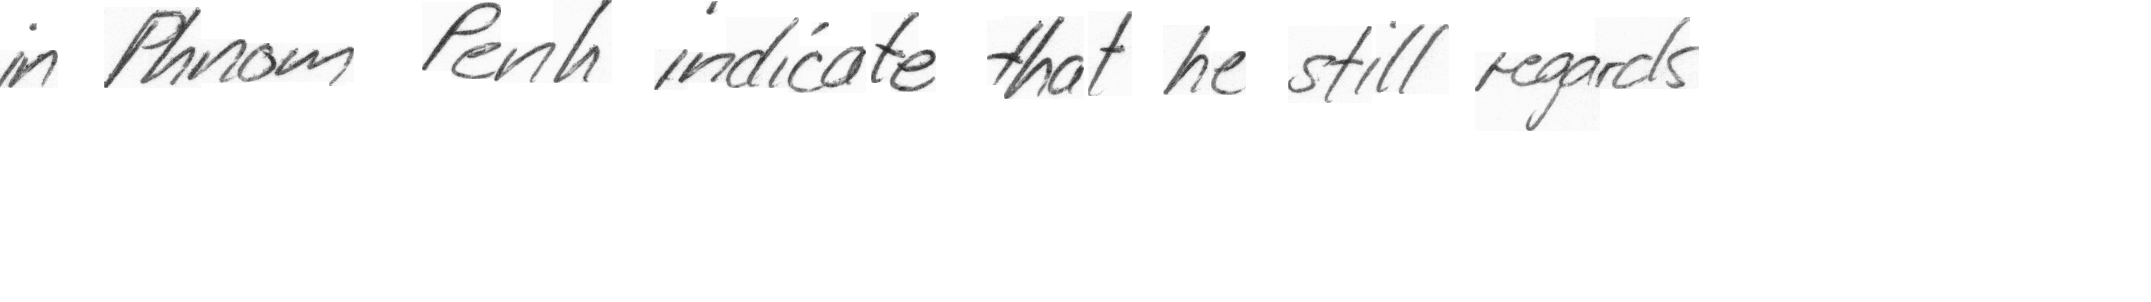 in Phnom Penh indicate that he still regards